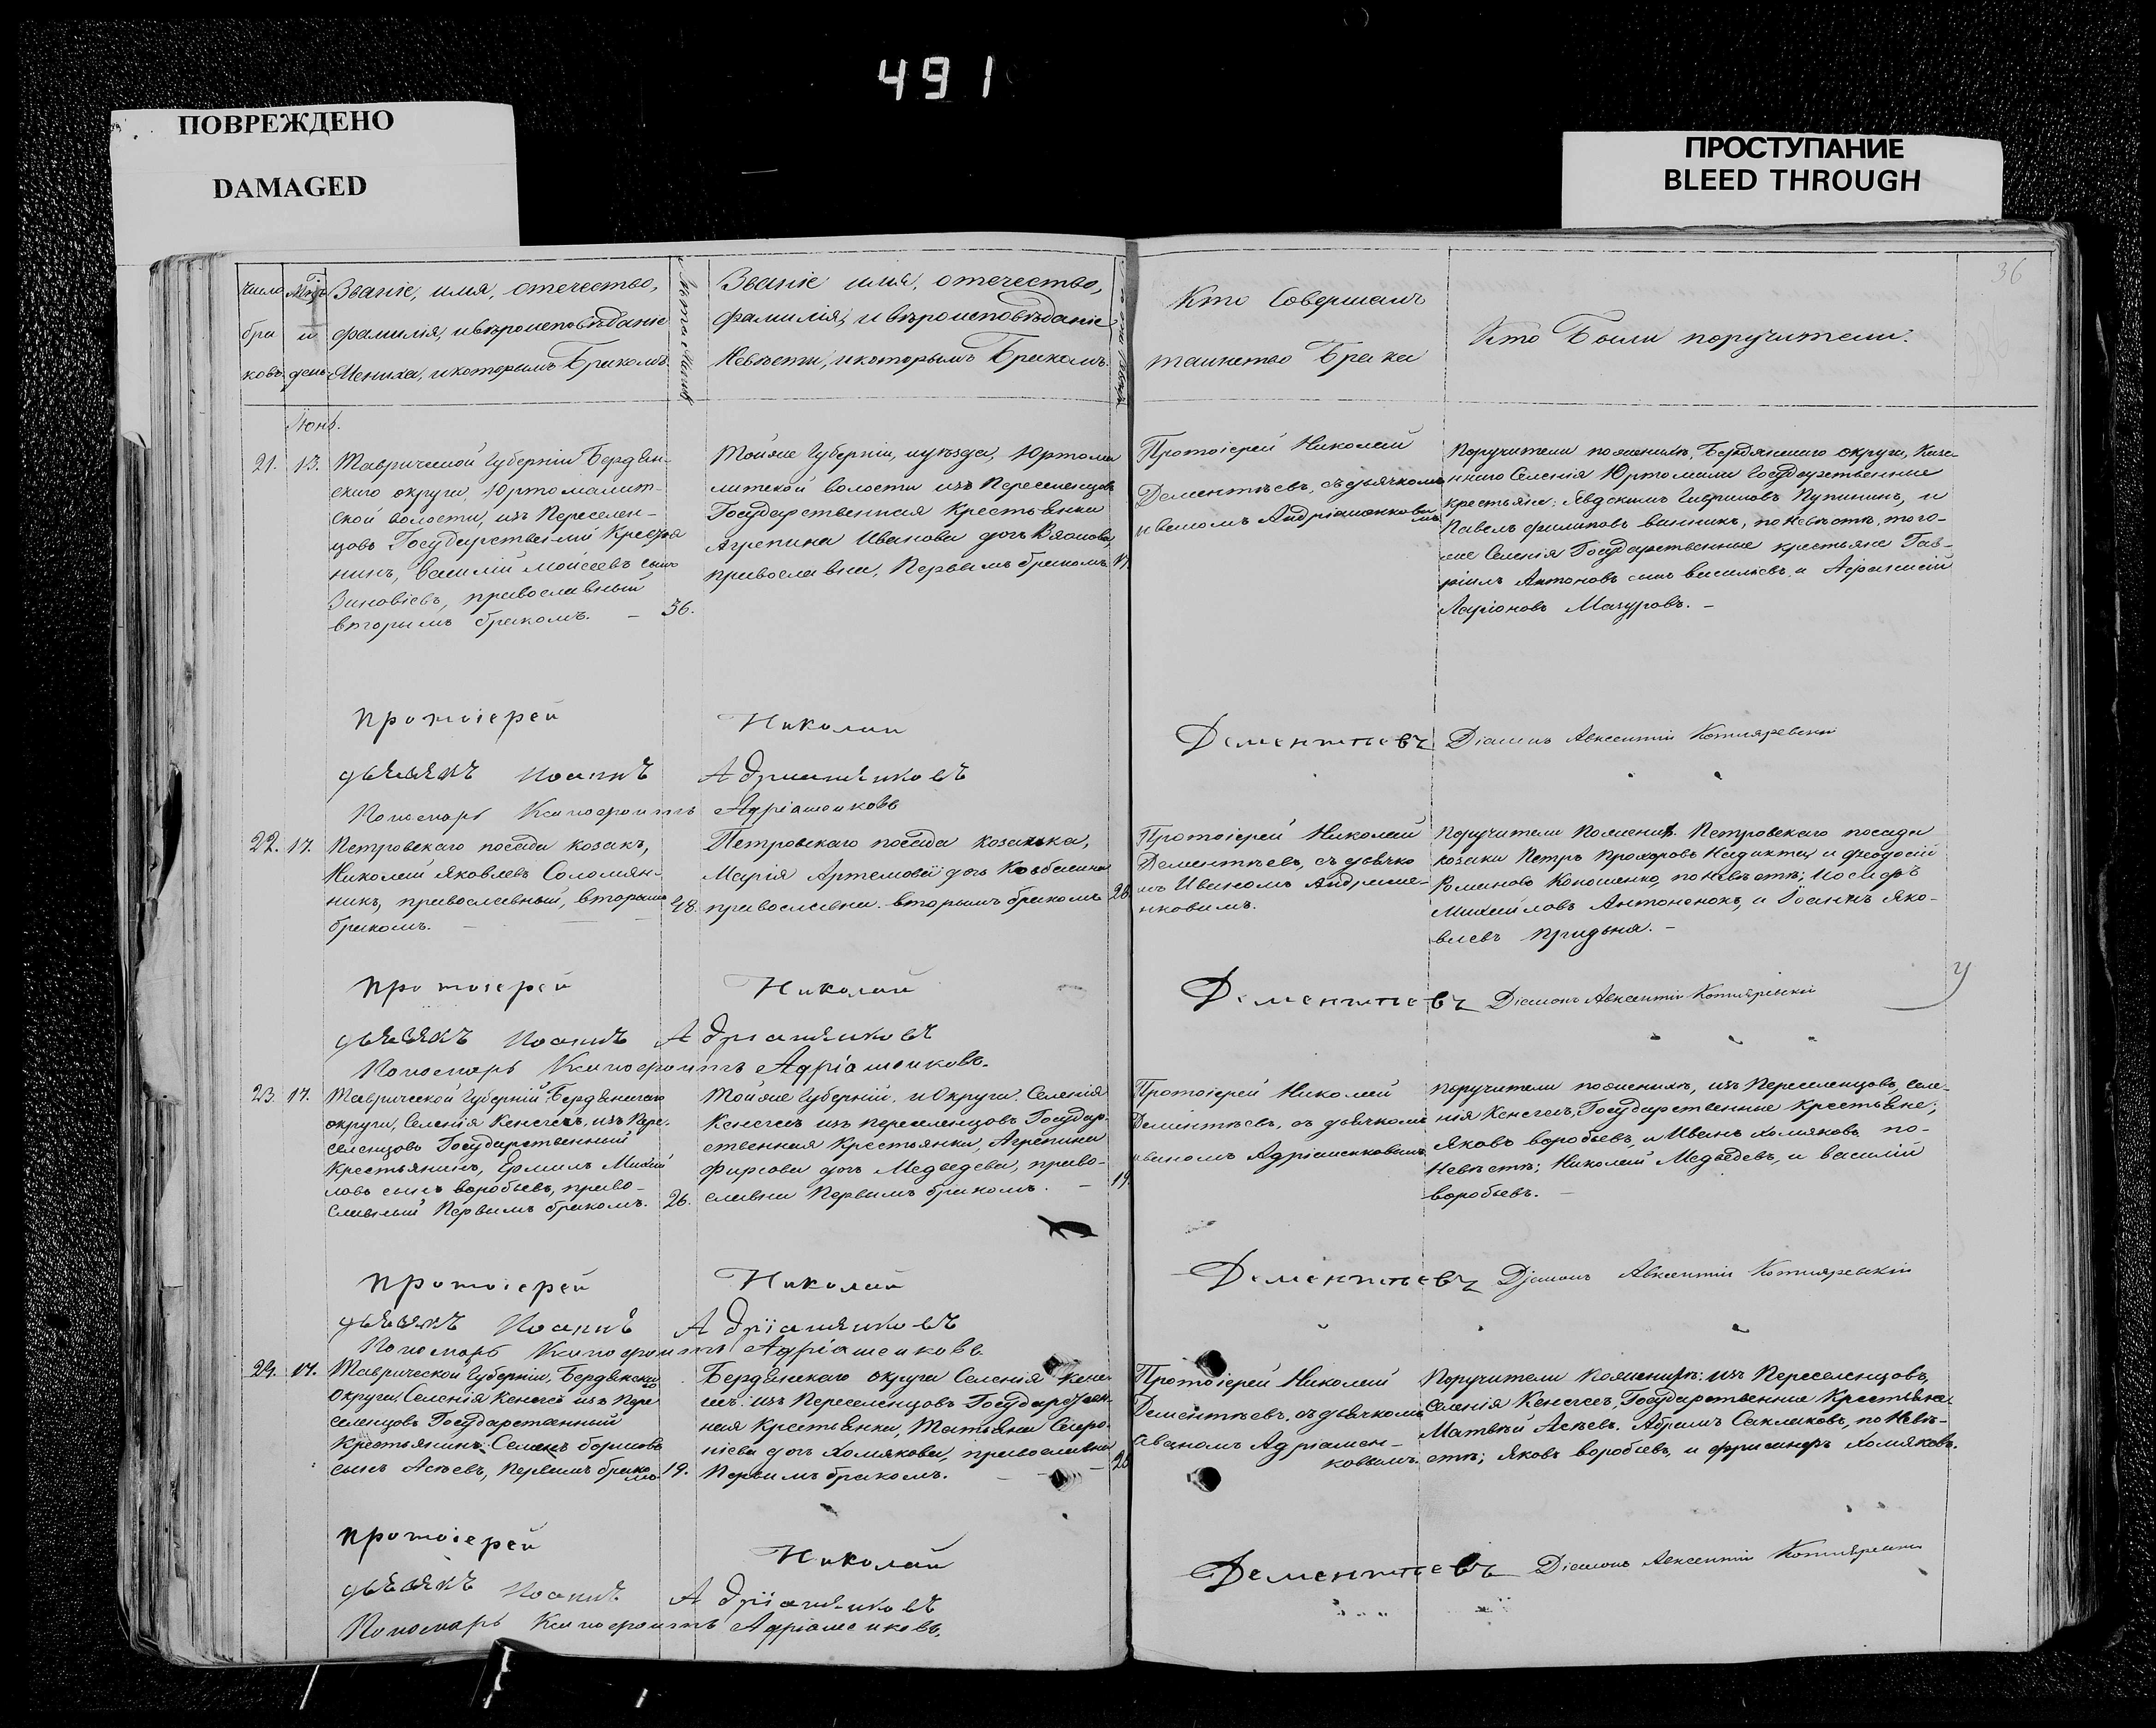 491
ПОВРЕЖДЕНО
DAMAGED
ПРОСТУПАНИЕ
BLEED THROUGH
36
Число бра ковъ.
Мѣцъ и день.
Званіе, имя, отечество,
фамилія, и вѣроисповѣданіе
Жениха, и которымъ Бракомъ.
Званіе имя, отечество,
фамилія, и вѣроисповѣданіе
Невѣсты, и которымъ Бракомъ.
Кто Совершалъ
таинство Брака
Кто Были поручители.
Іюнь.
21. 13.
Таврической Губерніи Бердян-
скаго округа, Юртомалит-
ской волости, изъ Переселен-
цовъ Государственный Крестья
нинъ, Василій Моисеевъ сынъ
Зиновіевъ, православный
вторымъ бракомъ. — 36.
Тойже Губерніи, и уѣзда, Юртома
литской волости изъ Переселенцовъ
Государственная Крестьянка
Агрепина Иванова дочь
православна, Первымъ бракомъ 17.
Протоіерей Николай
Дементѣевъ, съ дьячкомъ
Иваномъ Андріашенковы
мъ
Поручители по женихѣ, Бердянскаго округа, Казе-
ннаго Селенія Юртомали Государственные
крестьяне: Евдокимъ Гавриловъ Пупынинъ, и
Павелъ Филиповъ Банникъ, по Невѣстѣ, того-
же Селенія Государственные крестьяне Гав-
ріилъ Антоновъ сынъ Василіевъ, и Афанасій
Ларіоновъ Мазуровъ. —
Протоіерей Николай Дементѣевъ Діаконъ Авксентій Котляревскій
дьячокъ Іоаннъ Адріашенковъ
Пономарь Ксинофонтъ Адріашенковъ
22. 17.
Петровскаго посада козакъ,
Николай Яковлевъ Соломян-
никъ, православный, вторымъ 48.
бракомъ. —
Петровскаго посада козачка,
Марія Артемова дочь
православна. вторымъ бракомъ 28.
Протоіерей Николай
Дементѣевъ, съ дьячко
мъ Иваномъ Андріаше-
нковымъ.
Поручители по женихѣ. Петровскаго посада
козаки Петръ Прохоровъ и Феодосій
Романовъ Кононенко, по невѣстѣ; Іосифъ
Михайловъ Антоненокъ, и Іоаннъ Яко-
влевъ Придьна. —
Протоіерей Николай Дементѣевъ Діаконъ Авксентій Котляревскій
дьячокъ Іоаннъ Адріашенковъ
Пономарь Ксинофонтъ Адріашенковъ.
23. 17.
Таврической Губерніи, Бердянскаго
округа, Селенія Кенегезъ, изъ Пере-
селенцовъ Государственный
Крестьянинъ, Ермилъ Михай
ловъ сынъ Воробьевъ, право-
славный Первымъ бракомъ. 26.
Тойже Губерніи, и Округа. Селенія
Кенегезъ изъ переселенцовъ Государ-
ственная Крестьянка, Агрепина
Фирсова дочь Медведева, право-
славна Первымъ бракомъ. — 19.
Протоіерей Николай
Дементѣевъ, съ дьячкомъ
Иваномъ Адріашенковымъ
Поручители по женихѣ, изъ Переселенцовъ, Селе-
нія Кенегезъ, Государственные Крестьяне;
Яковъ Воробьевъ, и Иванъ Хомяковъ, по-
Невѣстѣ; Николай Медведевъ, и Василій
Воробьевъ. —
Протоіерей Николай Дементѣевъ Діаконъ Авксентій Котляревскій
дьячокъ Іоаннъ Адріашенковъ
Пономарь Ксинофонтъ Адріашенковъ
24. 17.
Таврической Губерніи, Бердянскаго
Округа, Селенія Кенегезъ изъ Пере
селенцовъ Государственный
Крестьянинъ, Семенъ Борисовъ
сынъ Асѣевъ, Первымъ брако
мъ 19.
Бердянскаго округа Селенія Кене-
гезъ. изъ Переселенцовъ Государствен-
ная Крестьянка, Татьяна
дочь Хомякова, православна
Первымъ бракомъ. — 20
Протоіерей Николай
Дементѣевъ, съ дьячкомъ
Иваномъ Адріашен-
ковымъ.
Поручители по женихѣ: изъ Переселенцовъ,
Селенія Кенегезъ, Государственные Крестьяне
Матвѣй Асѣевъ. Абрамъ Саклаковъ, по Невѣ-
стѣ; Яковъ Воробьевъ, и Хомяковъ.
Протоіерей Николай Дементѣевъ Діаконъ Авксентій Котляревскій
дьячокъ Іоаннъ Адріашенковъ
Пономарь Ксинофонтъ Адріашенковъ.